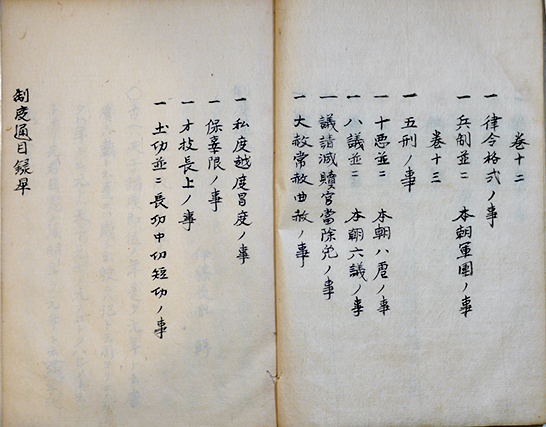 巻十二
一律令格式ノ事
一兵制並ニ 本朝軍團ノ事
巻十三
一五刑ノ事
一十悪並ニ 本朝八虐ノ事
一八議並ニ 本朝六議ノ事
一議請减贖官當除免ノ事
一大赦常赦曲赦ノ事
一私度越度冒度ノ事
一保辜限ノ事
一才技長上ノ事
一土功並ニ長功中功短功ノ事
制度通目録畢